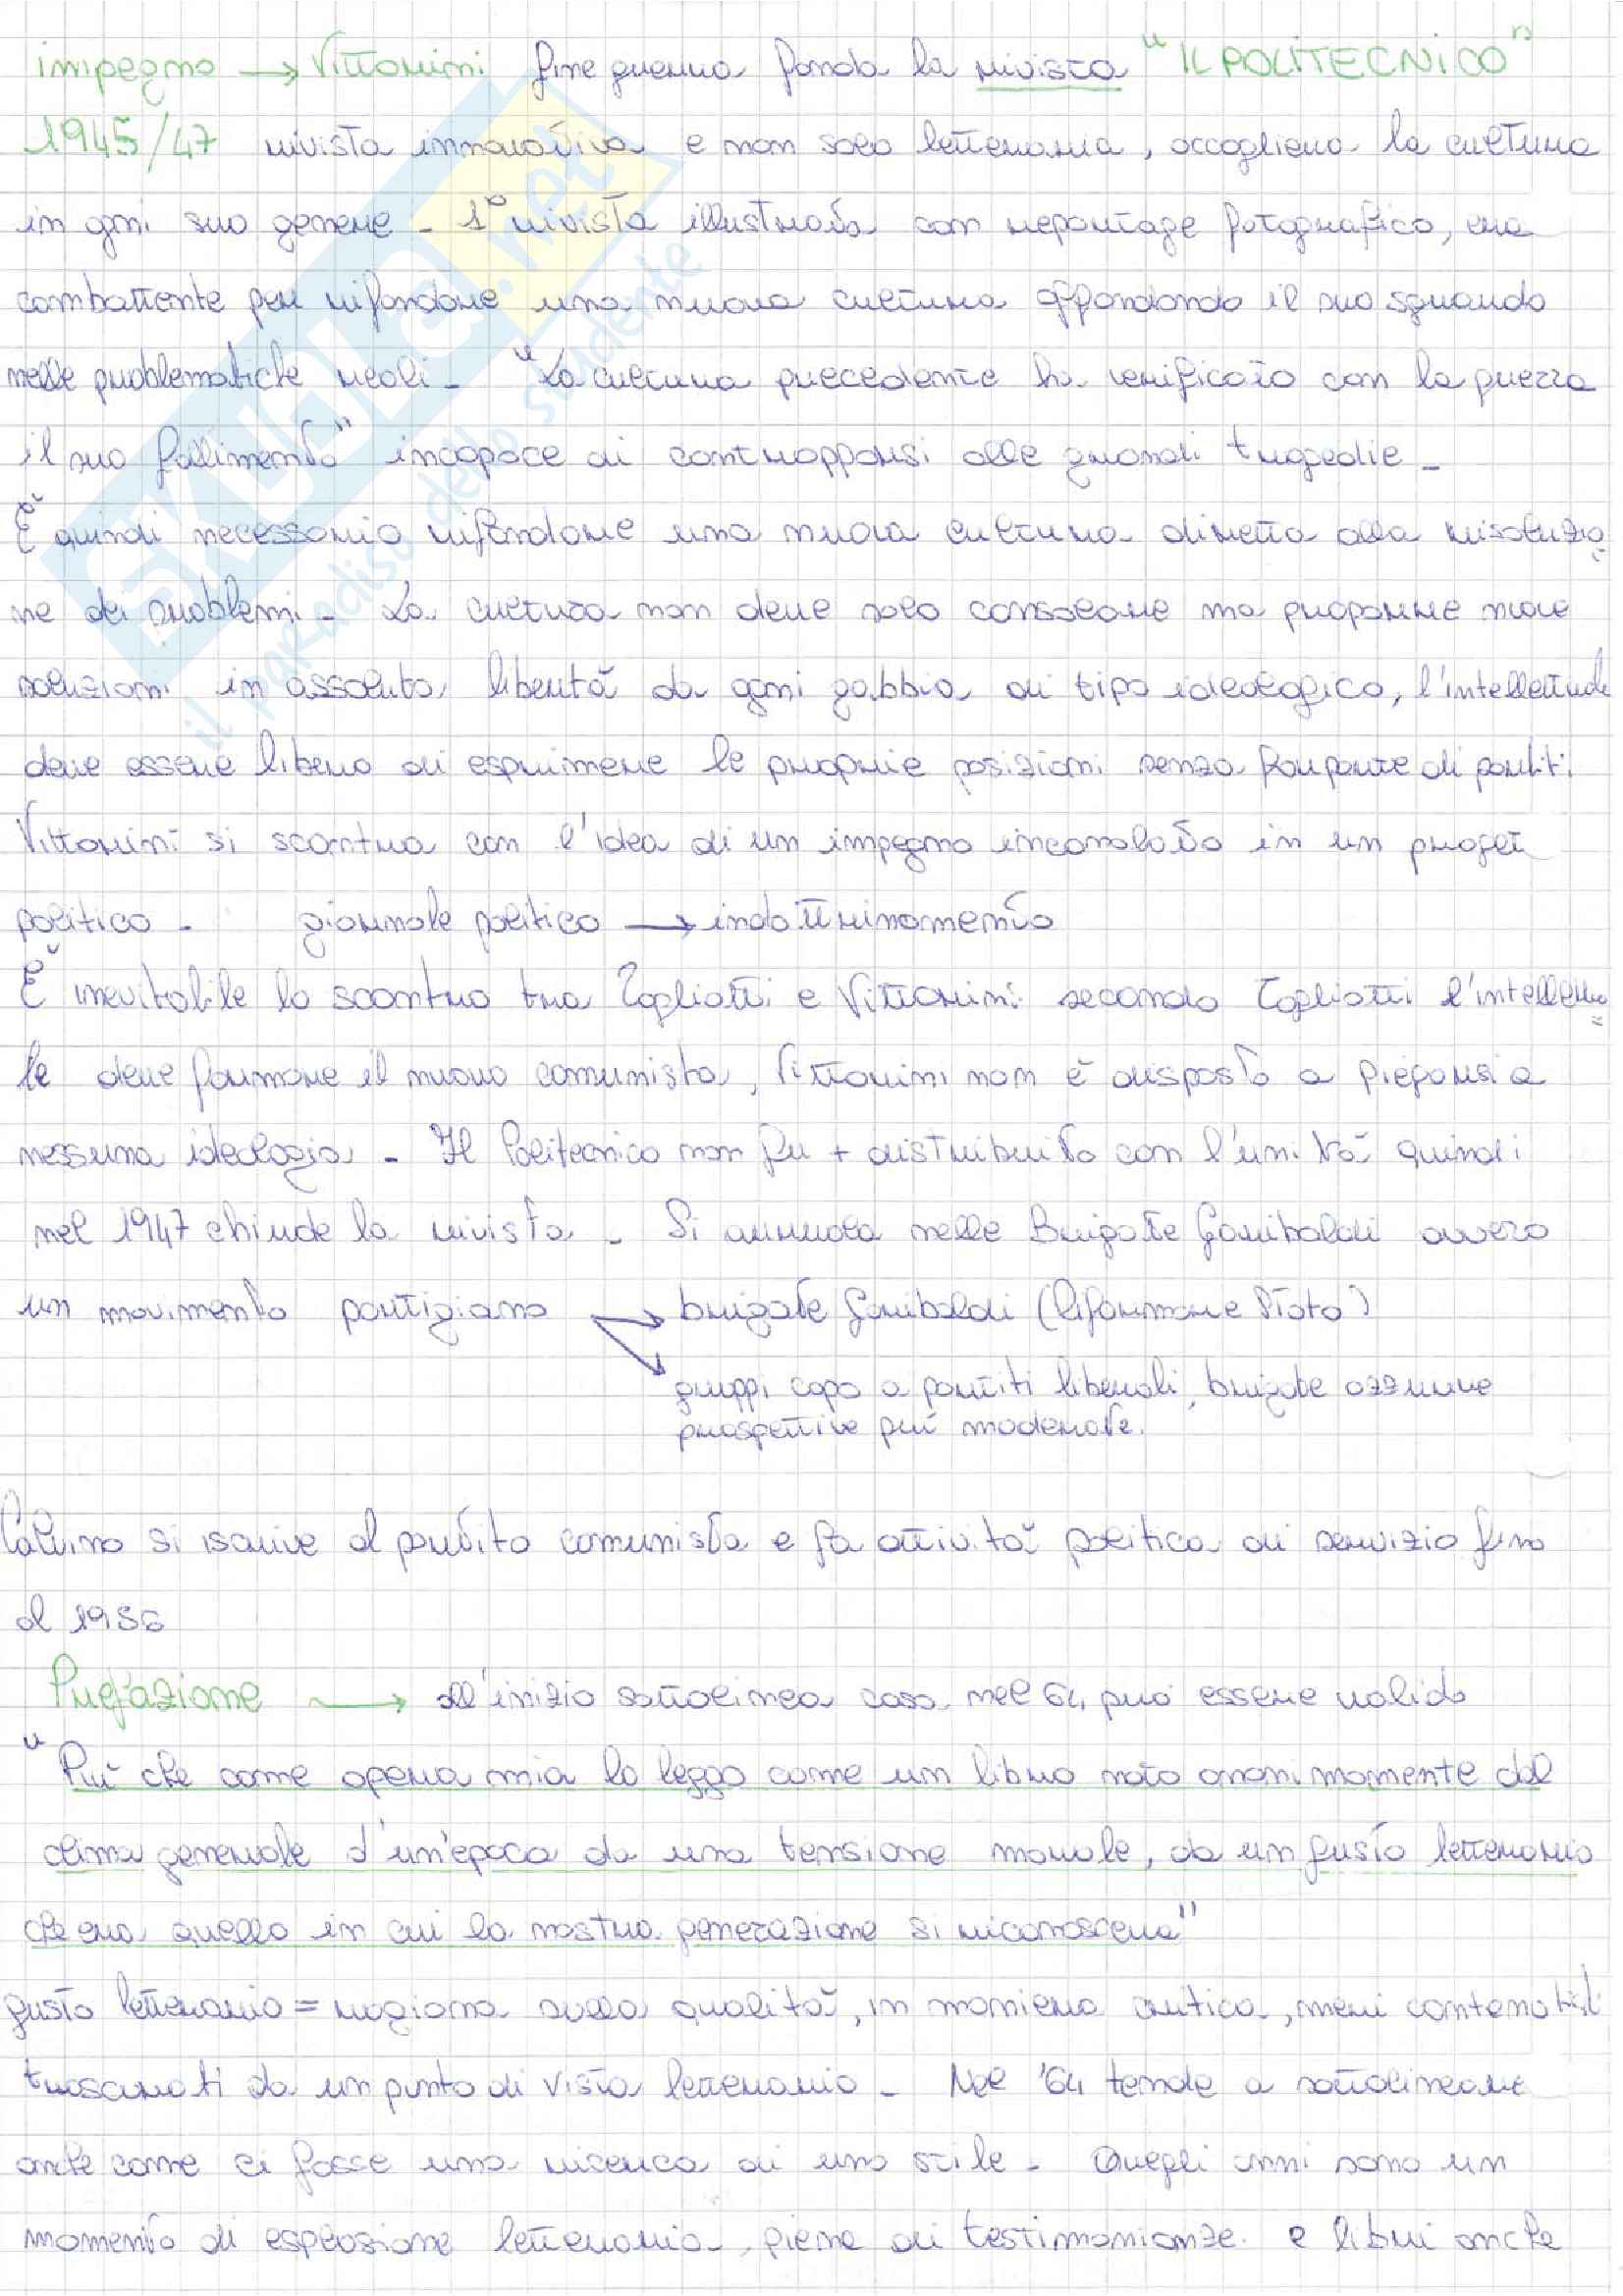 impegno → Vittorini fine guerra fonda la rivista "IL POLITECNICO"
1945/47 rivista innovativa e non solo letteraria, accoglieva la cultura
in ogni suo genere - 1° rivista illustrata con reportage fotografico, era
combattente per rifondare una nuova cultura affondando il suo sguardo
nelle problematiche reali - "La cultura precedente ha verificato con la guerra
il suo fallimento" incapace di contrapporsi alle grandi tragedie -
È quindi necessario rifondare una nuova cultura diretta alla risoluzio
ne dei problemi - La cultura non deve solo consolare ma proporre nuove
soluzioni in assoluta libertà da ogni gabbia di tipo ideologico, l'intellettuale
deve essere libero di esprimere le proprie posizioni senza far parte di partiti
Vittorini si scontra con l'idea di un impegno incanalato in un proget
politico - giornale politico → indottrinamento
È inevitabile lo scontro tra Togliatti e Vittorini secondo Togliatti l'intellettua
le deve formare il nuovo comunista, Vittorini non è disposto a piegarsi a
nessuna ideologia - Il Politecnico non fu + distribuito con l'unità quindi
nel 1947 chiude la rivista - Si arruola nelle Brigate Garibaldi ovvero
un movimento partigiano → brigate Garibaldi (Riformare Stato)
gruppi capo a partiti liberali, brigate azzurre
prospettive più moderate.
Calvino si iscrive al partito comunista e fa attività politica di servizio fino
al 1956
Prefazione → all'inizio sottolinea cosa nel 64 può essere valido
"Più che come opera mia lo leggo come un libro nato anonimamente dal
clima generale d'un'epoca da una tensione morale, da un gusto letterario
che era quello in cui la nostra generazione si riconosceva"
gusto letterario = ragiona sulla qualità, in maniera critica, meri contenutisti
trascurati da un punto di vista letterario - Nel '64 tende a sottolineare
anche come ci fosse una ricerca di uno stile - Quegli anni sono un
momento di esplosione letteraria, piena di testimonianze e libri anche
SKUOLA.net
il paradiso dello studente